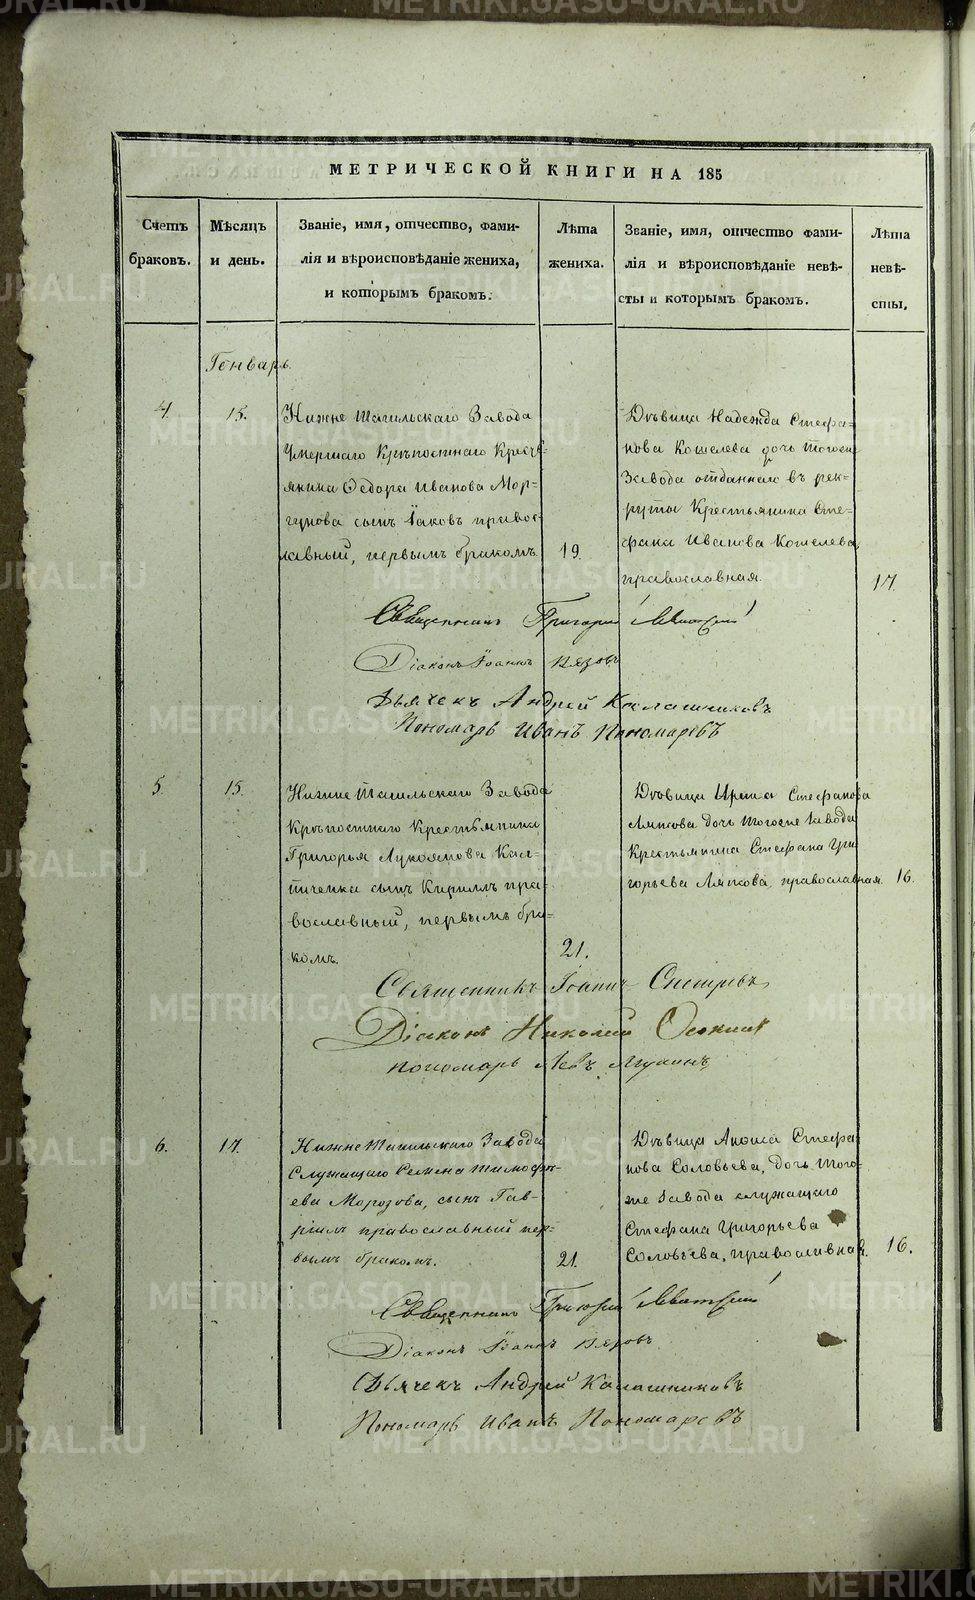 МЕТРИЧЕСКОЙ КНИГИ НА 185
Счетъ
браковъ.
Мѣсяцъ
и день.
Званіе, имя, отчество, фами-
лія и вѣроисповѣданіе жениха,
и которымъ бракомъ.
Лѣта
жениха.
Званіе, имя, отчество фами-
лія и вѣроисповѣданіе невѣ-
сты и которымъ бракомъ.
Лѣта
невѣ-
сты.
Генварь.
4.
15.
Нижне Тагильскаго Завода
Умершаго Крѣпостнаго Кресть-
янина Ѳедора Иванова Мор-
гунова сынъ Іаковъ правос-
лавный, первымъ бракомъ.
19.
Дѣвица Надежда Стефа-
нова Кошелева дочь тогоже
Завода отданнаго въ рек-
руты Крестьянина Сте-
фана Иванова Кошелева,
православная.
17.
Священникъ Григорій
Діаконъ Іоаннъ
Дьячекъ Андрей Калашниковъ
Пономарь Иванъ Пономаревъ
5
15.
Нижне Тагильскаго Завода
Крѣпостнаго Крестьянина
Григорья Лукоянова
сынъ Кириллъ пра-
вославный, первымъ бра-
комъ.
21.
Дѣвица Ирина Стефанова
Ляпцова дочь тогоже Завода
Крестьянина Стефана Гри
горьева Ляпцова, православная.
16.
Священникъ Іоаннъ
Діаконъ Николай
Пономарь Левъ
6.
17.
Нижне Тагильскаго Завода
Служащаго Семена Тимофѣ-
ева Морозова, сынъ Гав-
ріилъ православный пер-
вымъ бракомъ.
21.
Дѣвица Стефа-
нова Соловьева, дочь того-
же Завода служащаго
Стефана Григорьева
Соловьева, православная.
16.
Священникъ Григорій
Діаконъ Іоаннъ
Дьячекъ Андрей Калашниковъ
Пономарь Иванъ Пономаревъ
METRIKI.GASO-URAL.RU